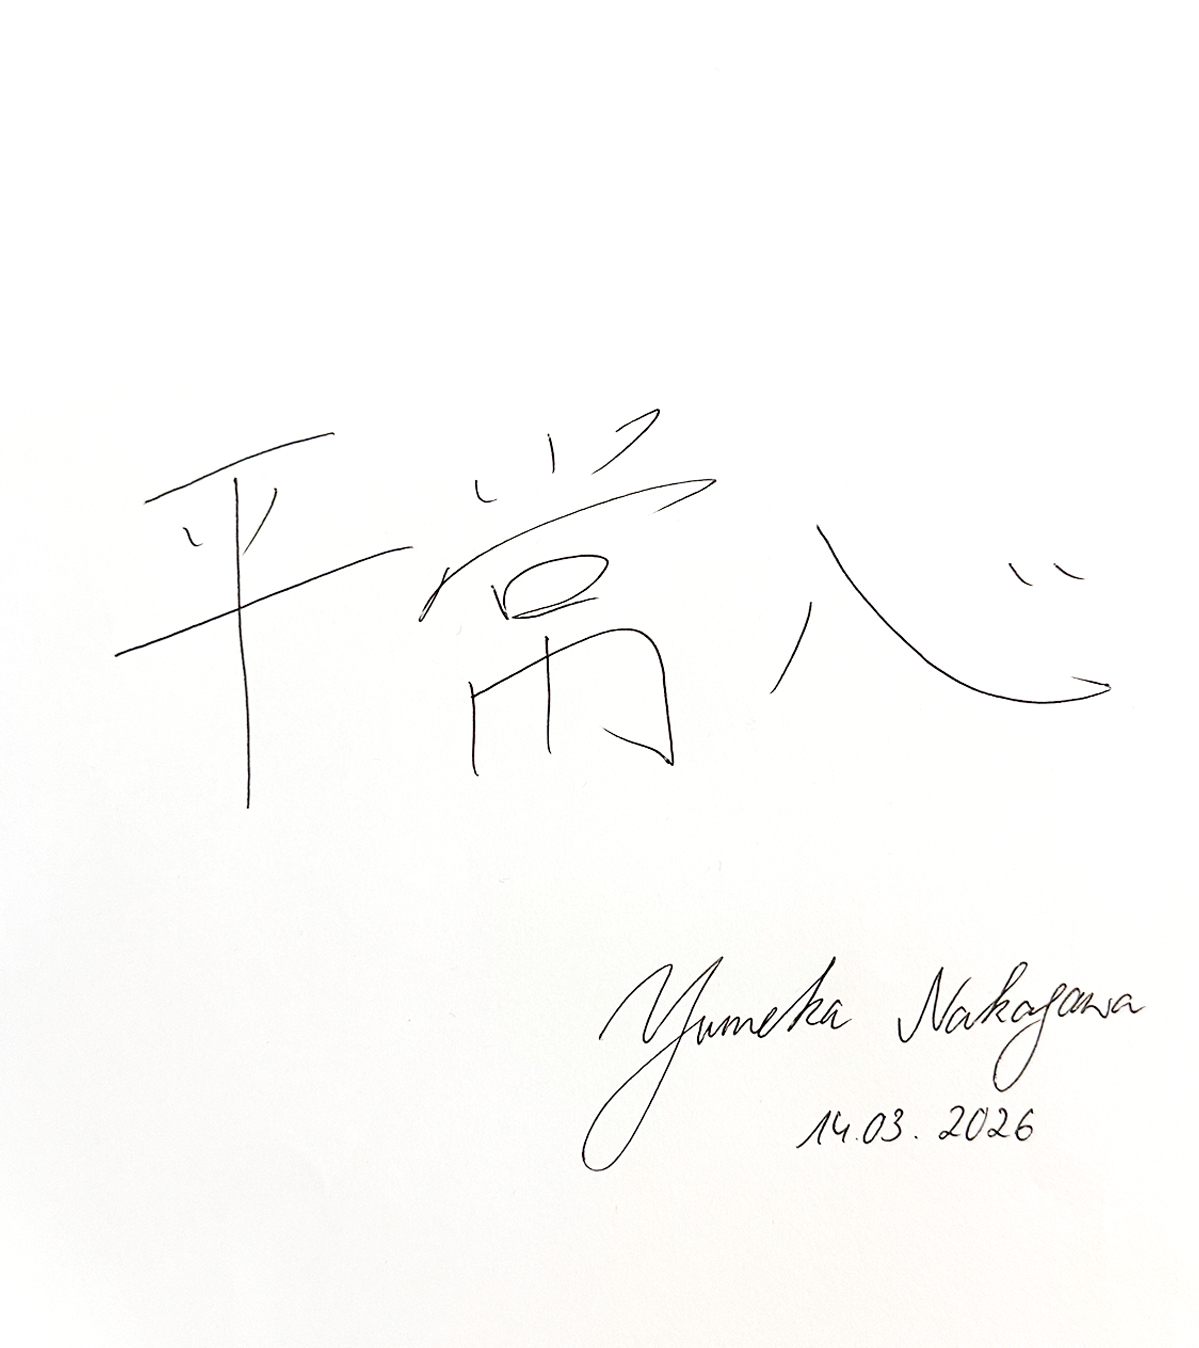 平常心
Yumeka Nakagawa
14.03.2026